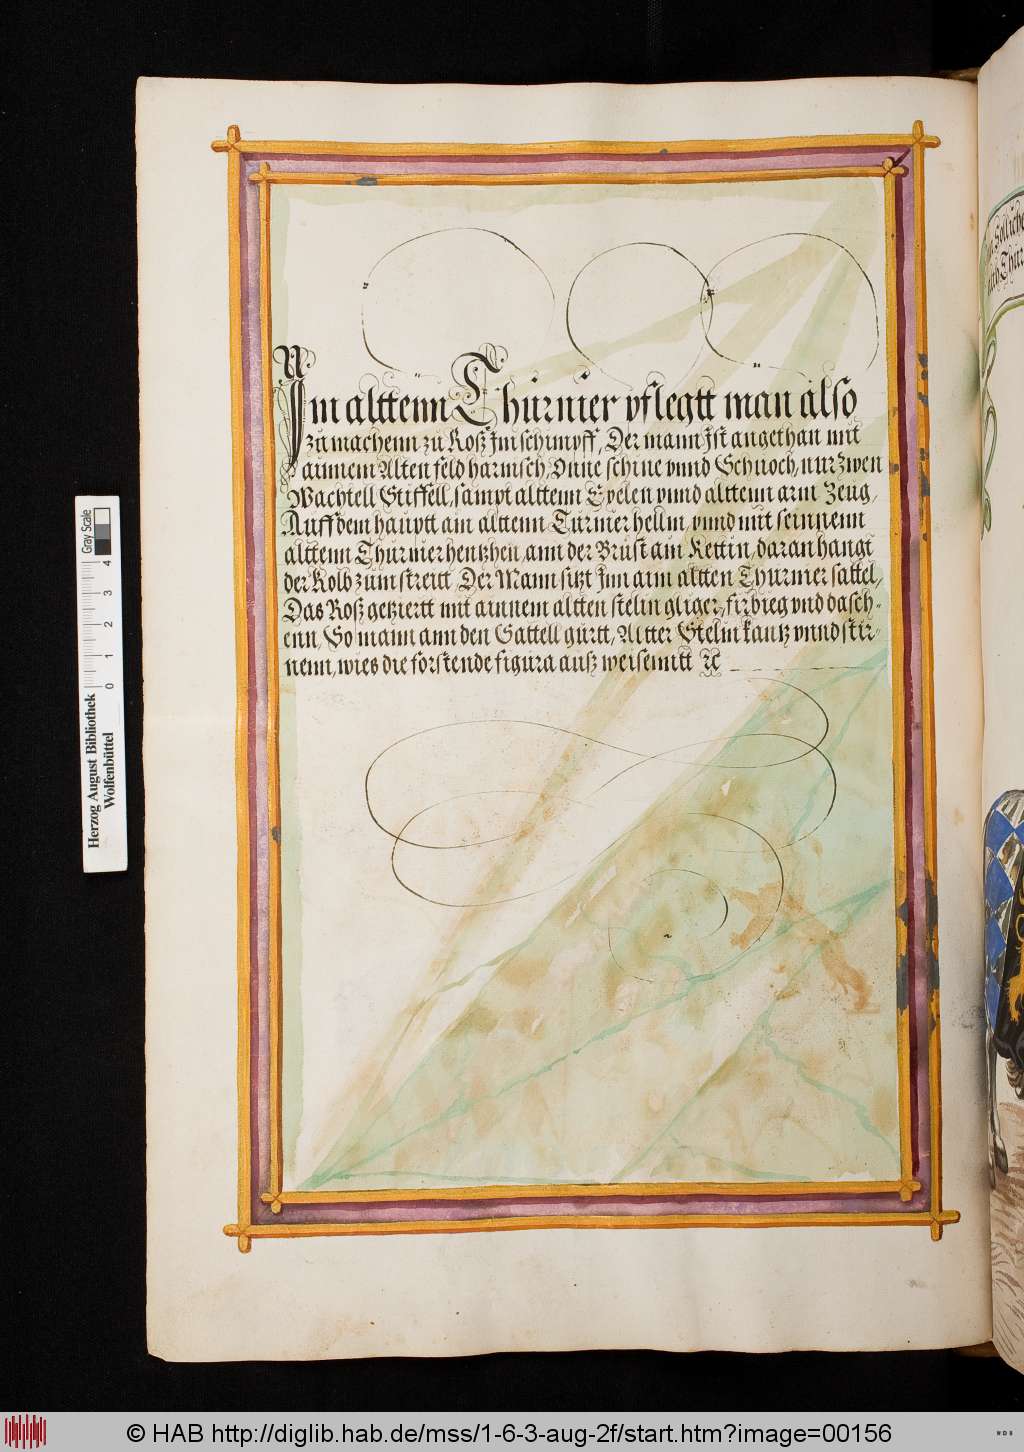 Im alttenn Thurnier pflegtt man also
zu machenn zu Roß Im schimpff, Der mann Ist angethan mit
ainnem Alten feld harnisch, Onne schine vnnd Schuoch, nur zwen
Wachtell Stiffell, sampt alttenn Epelen vnnd alttenn arm Zeug,
Auff dem hauptt ain alttenn Turnier hellm, vnnd mit seinnenn
alttenn Thurnier hentzhen, ann der Brust ain Kettin, daran hangt
der Kolb zum streitt Der Mann sitzt Inn aim altten Thurnier sattel,
Das Roß getziertt mit ainnem altten stelin gliger, firbieg vnd dasch-
enn, So mann ann den Sattell gurtt, Altter Stelin kantz vnnd stir-
nenn, wies die forstende figura auß weisenntt
Solliche
nach Thur
Herzog August Bibliothek
Wolfenbüttel
Gray Scale
0 1 2 3 4
© HAB http://diglib.hab.de/mss/1-6-3-aug-2f/start.htm?image=00156
WDB